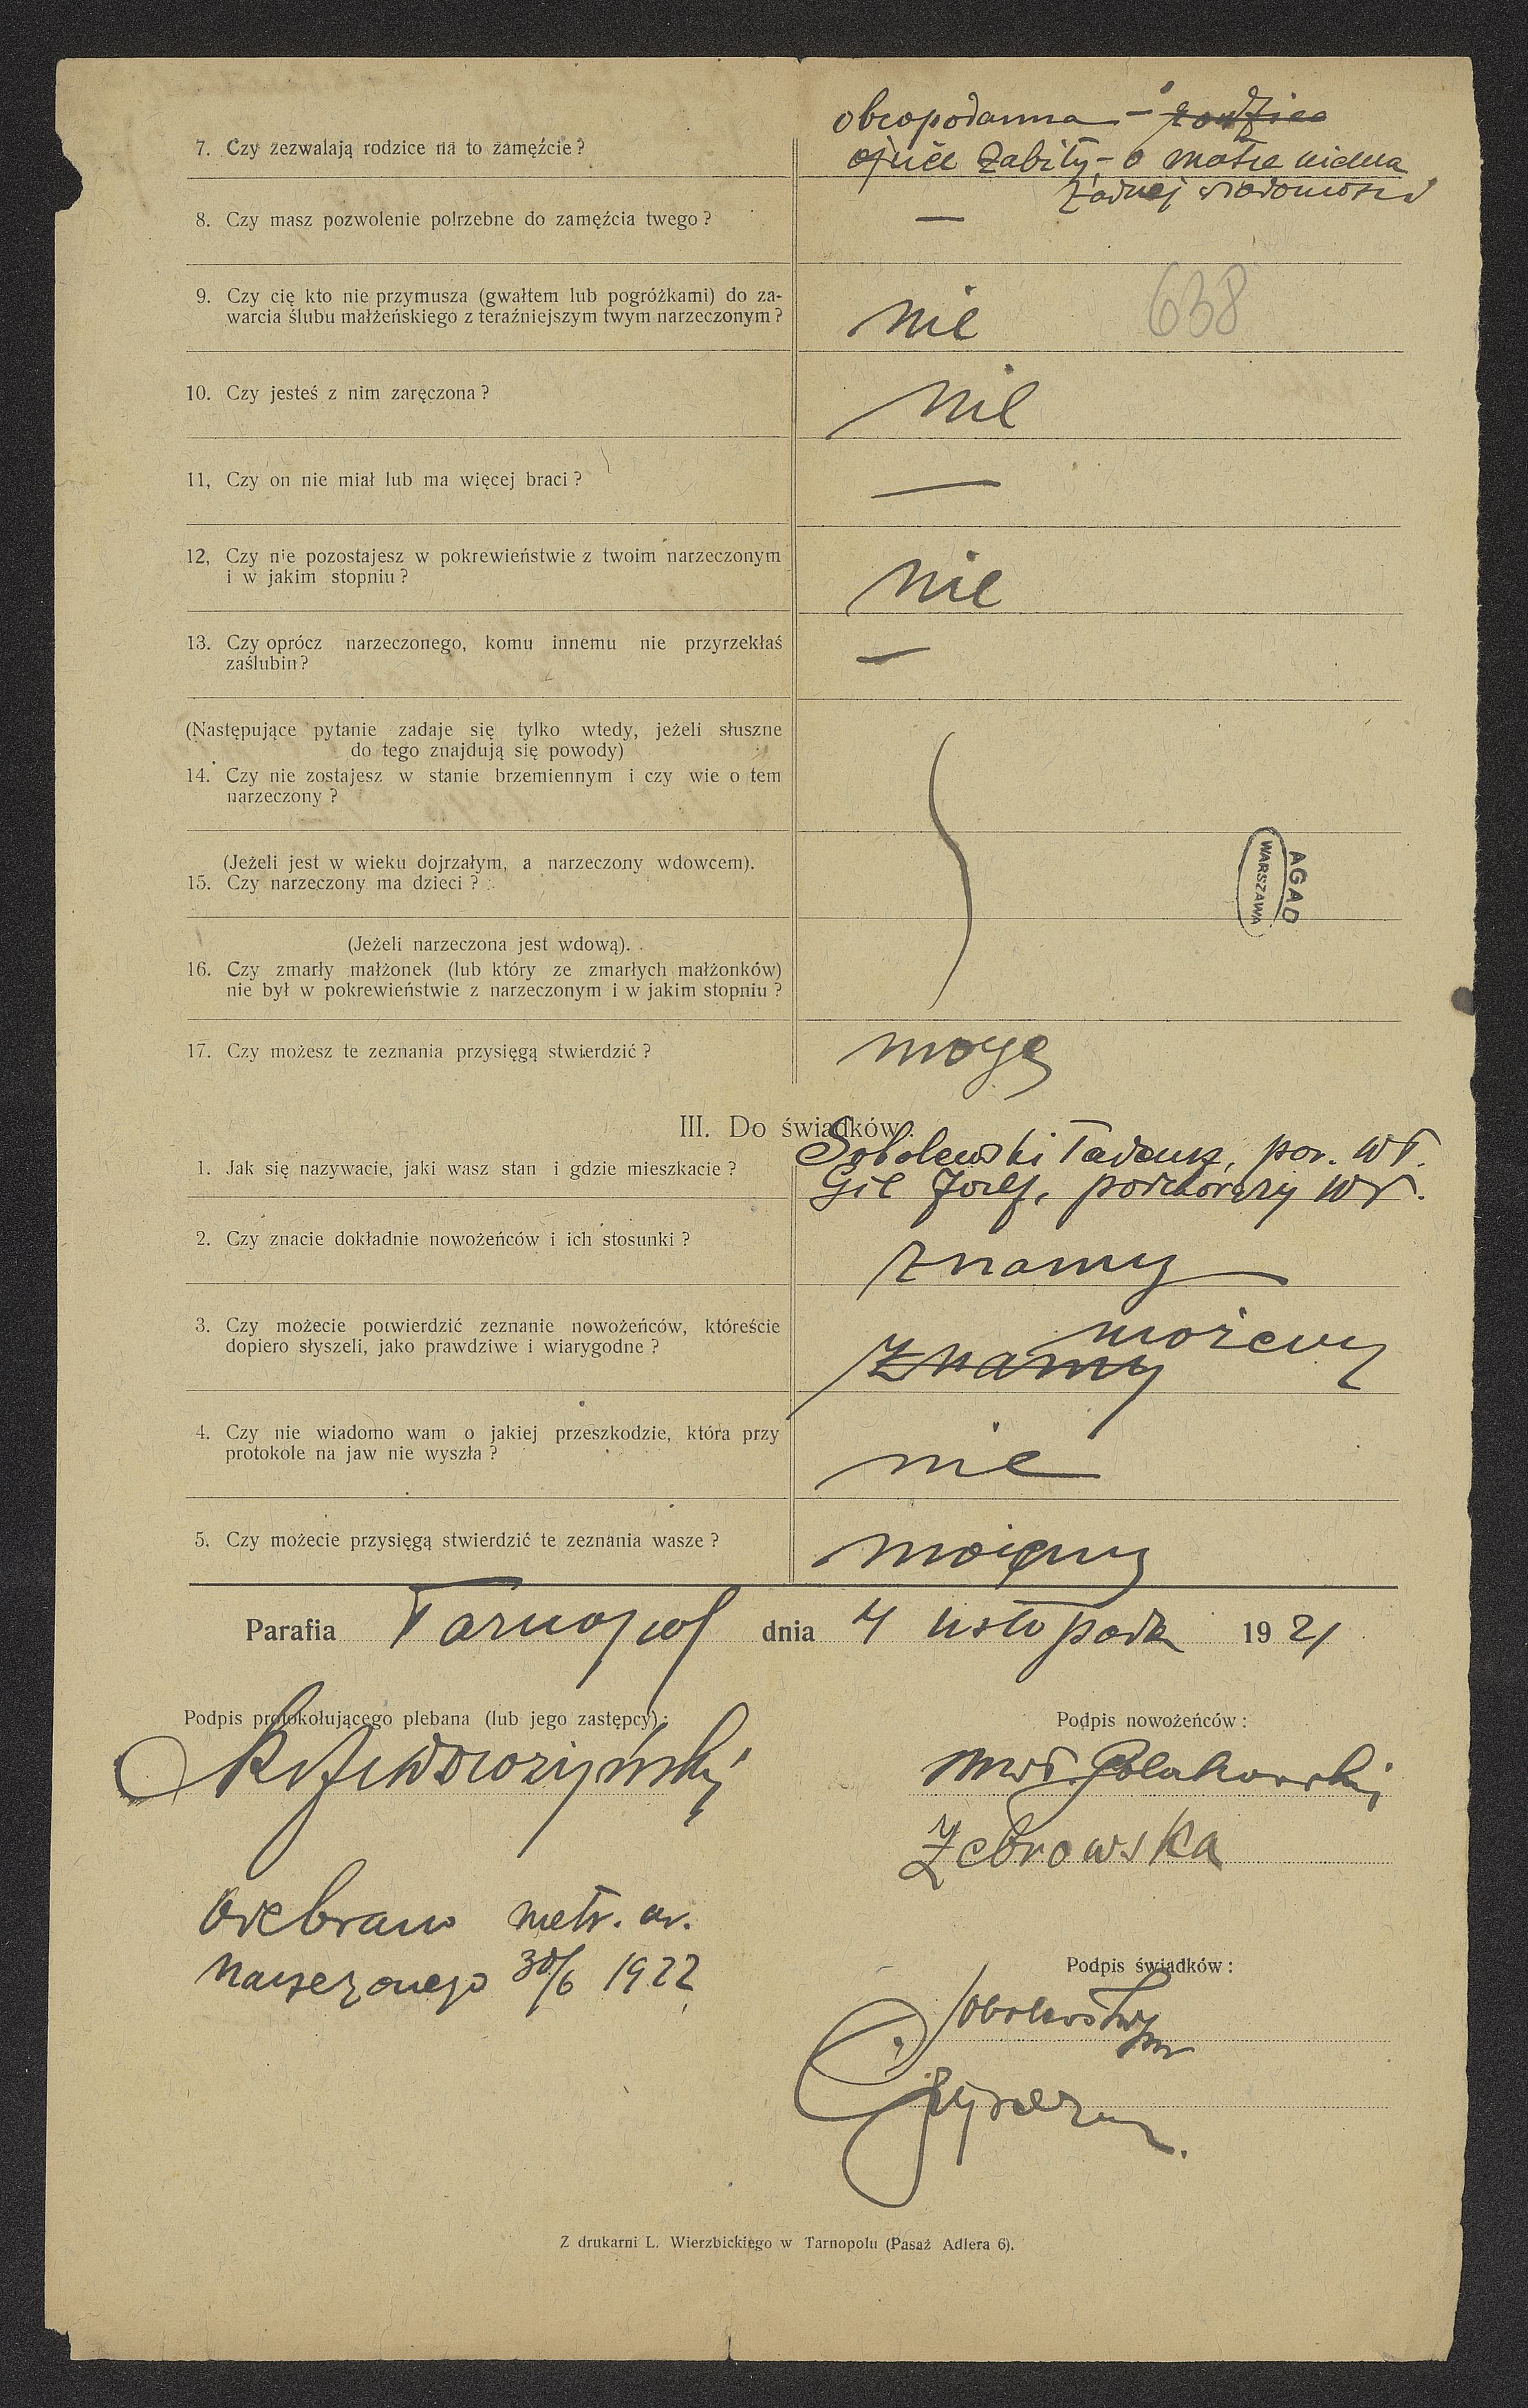 obcopodanna – rodzice
7. Czy zezwalają rodzice na to zamęźcie?
ojciec zabity – o matce niema
żadnej wiadomości
8. Czy masz pozwolenie potrzebne do zamęźcia twego? —
638
9. Czy cię kto nie przymusza (gwałtem lub pogróżkami) do za-
warcia ślubu małżeńskiego z teraźniejszym twym narzeczonym? nie
10. Czy jesteś z nim zaręczona? nie
11, Czy on nie miał lub ma więcej braci? —
12, Czy nie pozostajesz w pokrewieństwie z twoim narzeczonym
i w jakim stopniu? nie
13. Czy oprócz narzeczonego, komu innemu nie przyrzekłaś
zaślubin? —
(Następujące pytanie zadaje się tylko wtedy, jeżeli słuszne
do tego znajdują się powody)
14. Czy nie zostajesz w stanie brzemiennym i czy wie o tem
narzeczony?
(Jeżeli jest w wieku dojrzałym, a narzeczony wdowcem).
15. Czy narzeczony ma dzieci?
AGAD
WARSZAWA
(Jeżeli narzeczona jest wdową).
16. Czy zmarły małżonek (lub który ze zmarłych małżonków)
nie był w pokrewieństwie z narzeczonym i w jakim stopniu?
17. Czy możesz te zeznania przysięgą stwierdzić? mogę
III. Do świadków:
Sobolewski Tadeusz, por. WP.
1. Jak się nazywacie, jaki wasz stan i gdzie mieszkacie?
Gil Józef, podchorąży WP.
2. Czy znacie dokładnie nowożeńców i ich stosunki? znamy
3. Czy możecie potwierdzić zeznanie nowożeńców, któreście
dopiero słyszeli, jako prawdziwe i wiarygodne? znamy możemy
4. Czy nie wiadomo wam o jakiej przeszkodzie, która przy
protokole na jaw nie wyszła? nie
5. Czy możecie przysięgą stwierdzić te zeznania wasze? możemy
Parafia Tarnopol dnia 4 listopada 1921
Podpis protokołującego plebana (lub jego zastępcy):
Podpis nowożeńców:
Polakowski
Żebrowska
Odebrano metr. ur.
narzeczonego 30/6 1922
Podpis świadków:
Sobolewski por
Z drukarni L. Wierzbickiego w Tarnopolu (Pasaż Adlera 6).